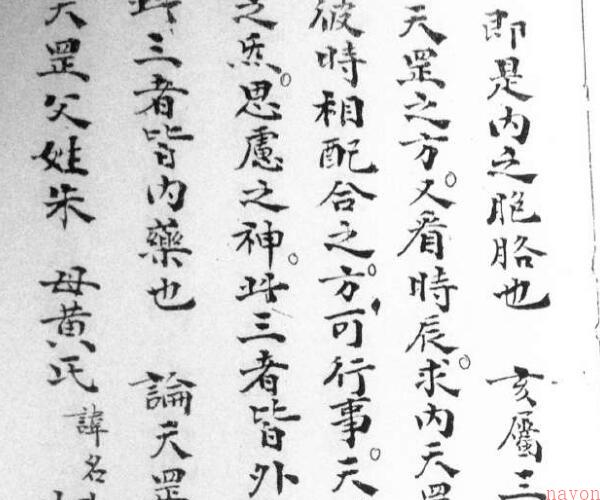 即是内之胞胳也 亥屬三
天罡之方。又看時辰。求内天罡
彼時相配合之方。可行事。天
之炁。思慮之神。此三者皆外
此三者皆内藥也 論天罡
天罡父姓朱 母黄氏 諱名
navon